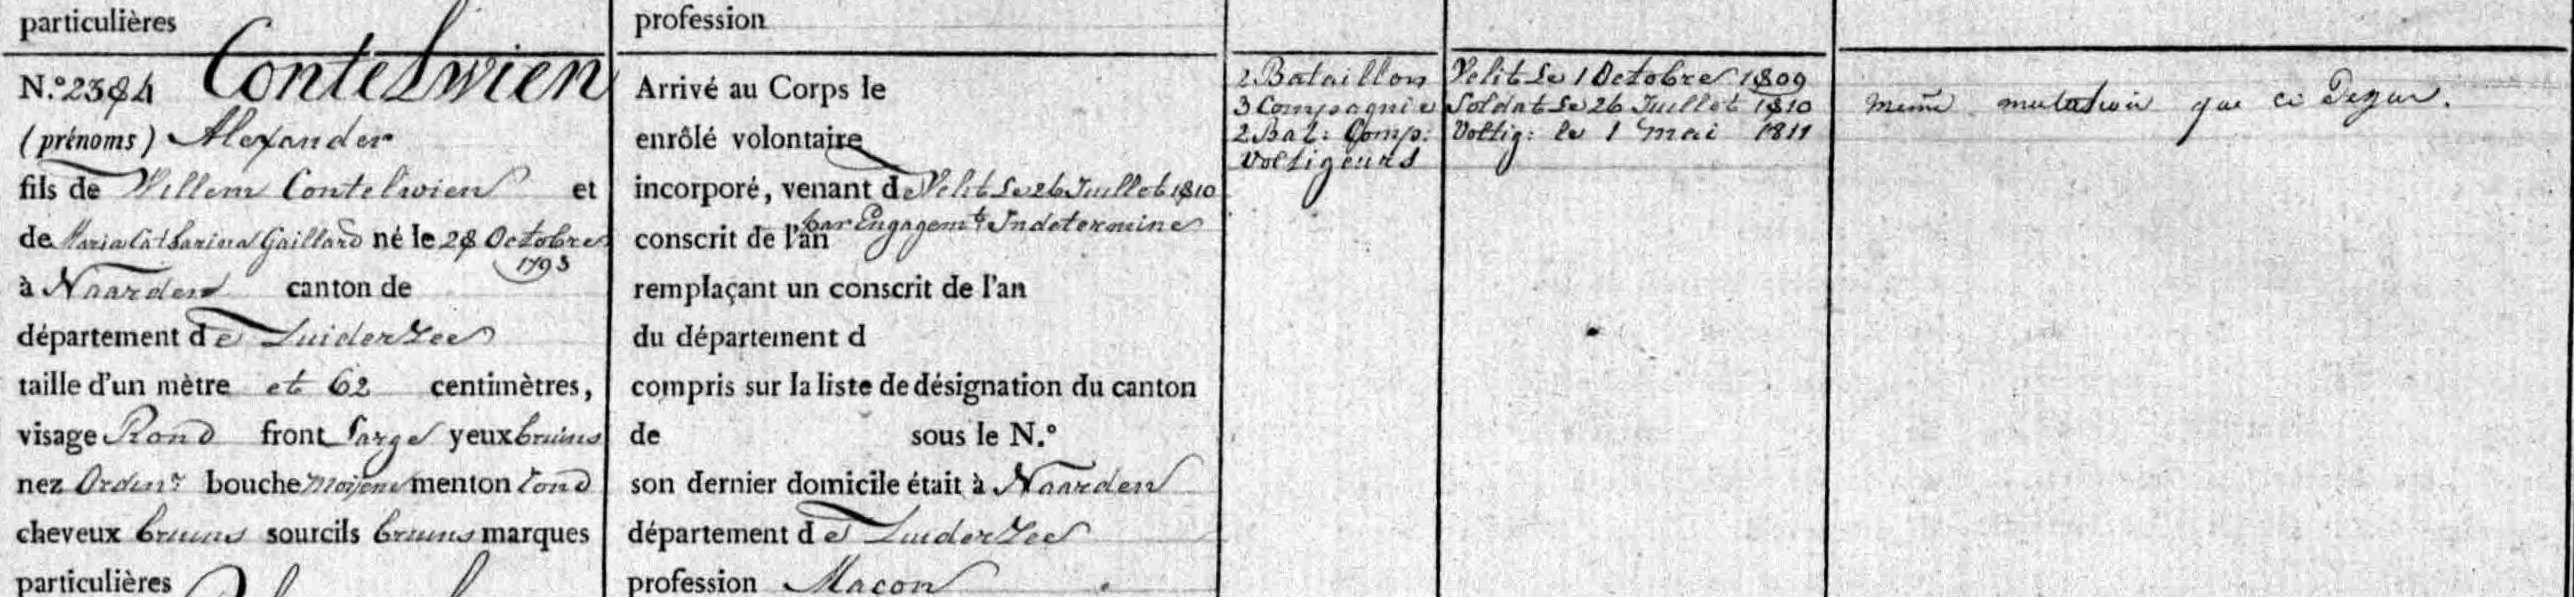 particulières
N.º 2384 Contelwien
(prénoms) Alexander
fils de Willem Contelwien et
de Maria Catharina Gaillard né le 28 Octobre
1793
à Naarden canton de
département de Zuiderzee
taille d'un mètre et 62 centimètres,
visage Rond front Large yeux bruins
nez Ordinr bouche Moijene menton rond
cheveux bruns sourcils bruns marques
particulières
profession
Arrivé au Corps le
enrôlé volontaire
incorporé, venant de Velit Le 26 Juillet 1810
par Engagemt Indetermine
conscrit de l'an
remplaçant un conscrit de l'an
du département d
compris sur la liste de désignation du canton
de sous le N.º
son dernier domicile était à Naarden
département de Zuiderzee
profession Macon
2 Bataillon
3 Compagnie
2 Bat: Comp:
Voltigeurs
Velit Le 1 Octobre 1809
Soldat Le 26 Juillet 1810
Voltig: le 1 Mai 1811
meme mutation que ci Dessus.